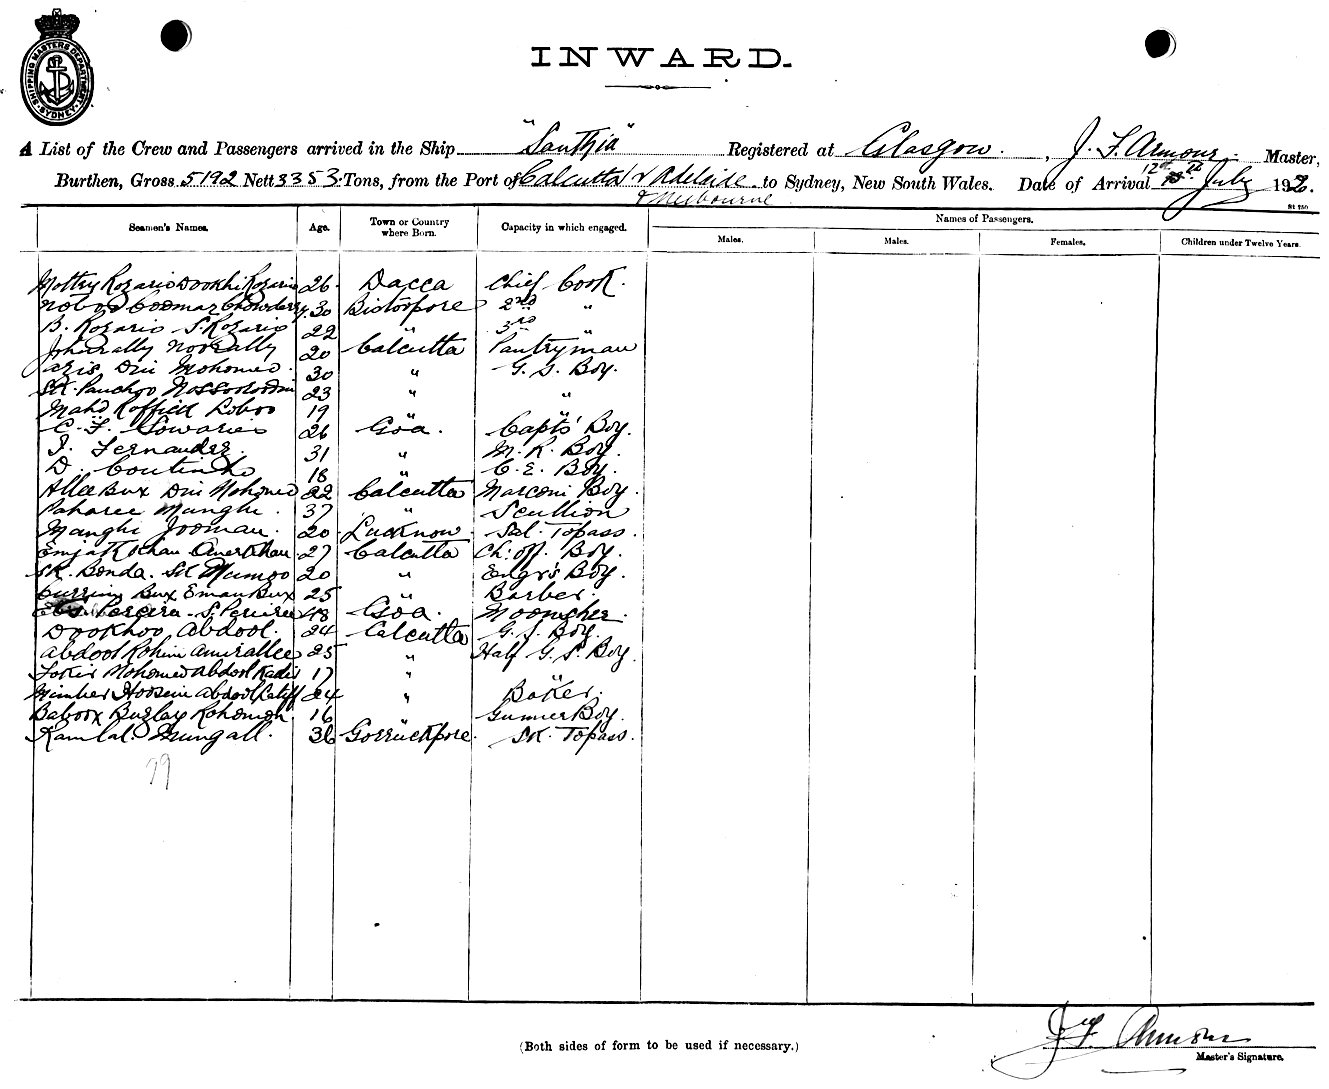 SHIPPING MASTERS DEPARTMENT SYDNEY
INWARD.
A List of the Crew and Passengers arrived in the Ship "Santhia" Registered at Glasgow. , J. F. Armour. Master,
Burthen, Gross 5192 Nett 3353 Tons, from the Port of Calcutta & Adelaide to Sydney, New South Wales. Date of Arrival 12th July 192
& Melbourne
Seamen's Names. Age. Town or Country where Born. Capacity in which engaged. Names of Passengers.
Males. Males. Females. Children under Twelve Years.
Mottry Rozario Dookhi Rozario 26 Dacca Chief Cook.
Coomar Chowdery. 30 Bistorpore 2nd "
B. Rozario S. Rozario 22 " 3rd "
Noorally 20 Calcutta Pantryman
Din Mohomed. 30 " G. S. Boy.
SK. Panchoo 23 " "
Mahd Roffick 19 " "
C. F. 26 Goa. Capts' Boy.
J. Fernandez. 31 " M. R. Boy.
D. Coutinho 18 " C. E. Boy.
Allee Bux Din Mohomed 22 Calcutta Marconi Boy.
Paharee Manghi. 37 " Scullion
Manghi Jooman. 20 Lucknow. Sal. Topass.
Khan Amerkhan 27 Calcutta Ch: off. Boy.
SK. Bonda. SK Mamoo 20 " Engr's Boy.
Bux Eman Bux 25 " Barber.
Pereira - S. Pereira 18 Goa.
Dookhoo Abdool. 24 Calcutta G. S. Boy.
Abdool Rohim Amirallee 25 " Half G. S. Boy.
Mohomed Abdool Kadir 17 " "
Hossein Abdool Latiff 24 " Baker.
Baboox Buglay 16 " Gunner Boy.
Ramlal. Mungall. 36 Gorruckpore. SK. Topass.
J. F. Armour
(Both sides of form to be used if necessary.)
Master's Signature.